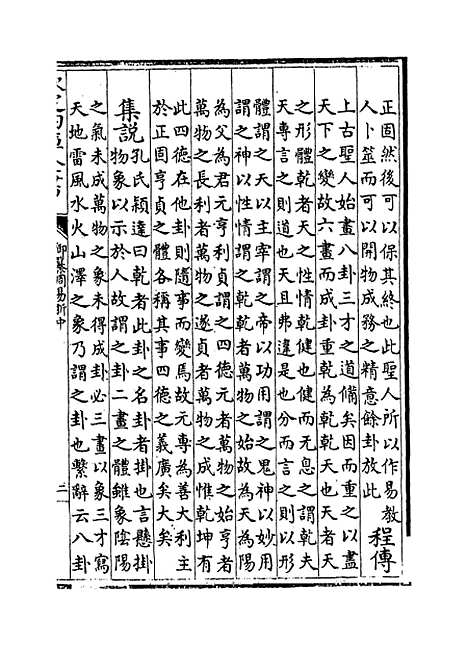 正固然後可以保其終也此聖人所以作易教
人卜筮而可以開物成務之精意餘卦放此
程傳
上古聖人始畫八卦三才之道備矣因而重之以盡
天下之變故六畫而成卦重乾為乾乾天也天者天
之形體乾者天之性情乾健也健而无息之謂乾夫
天專言之則道也天且弗違是也分而言之則以形
體謂之天以主宰謂之帝以功用謂之鬼神以妙用
謂之神以性情謂之乾乾者萬物之始故為天為陽
為父為君元亨利貞謂之四德元者萬物之始亨者
萬物之長利者萬物之遂貞者萬物之成惟乾坤有
此四德在他卦則隨事而變焉故元専為善大利主
於正固亨貞之體各稱其事四德之義廣矣大矣
集説
孔氏穎達曰乾者此卦之名卦者掛也言懸掛
物象以示於人故謂之卦二畫之體雖象陰陽
之氣未成萬物之象未得成卦必三畫以象三才寫
天地雷風水火山澤之象乃謂之卦也繫辭云八卦
御纂周易折中